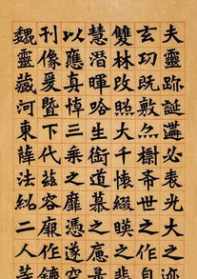 夫靈跡誕遘必表光大之迹
玄功既敷亦標希世之作
雙林改照大千懷綴暎之悲
慧潛暉唅生銜道慕之應是
以應真悼三乘之靡憑
刊像爰暨下代茲容廞作
魏靈藏河東薛法紹二人等